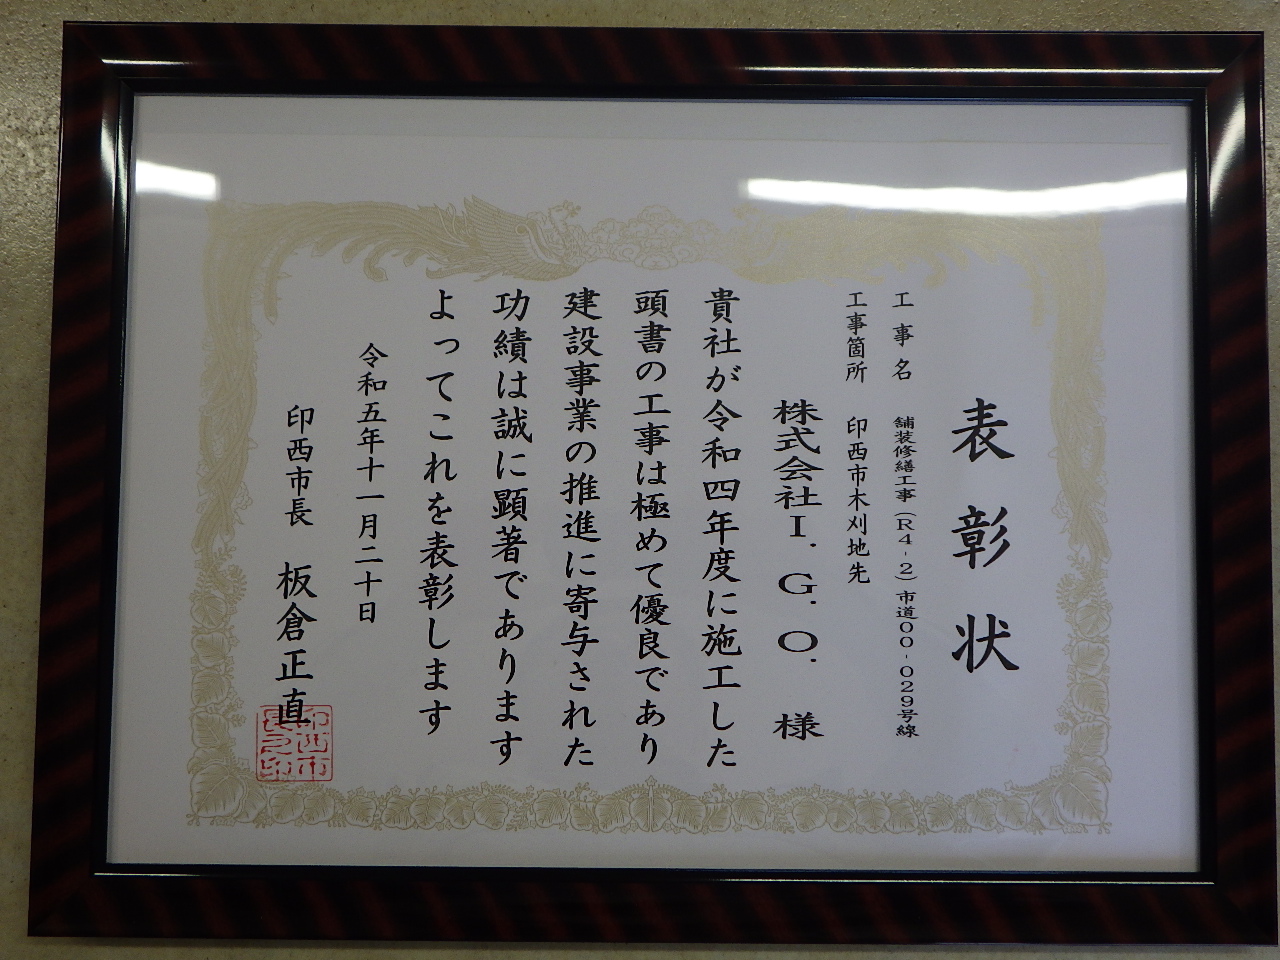 表彰状
工事名 舗装修繕工事(R4-2)市道00-029号線
工事箇所 印西市木刈地先
株式会社I.G.O. 様
貴社が令和四年度に施工した
頭書の工事は極めて優良であり
建設事業の推進に寄与された
功績は誠に顕著であります
よってこれを表彰します
令和五年十一月二十日
印西市長 板倉正直
印西市
長之印